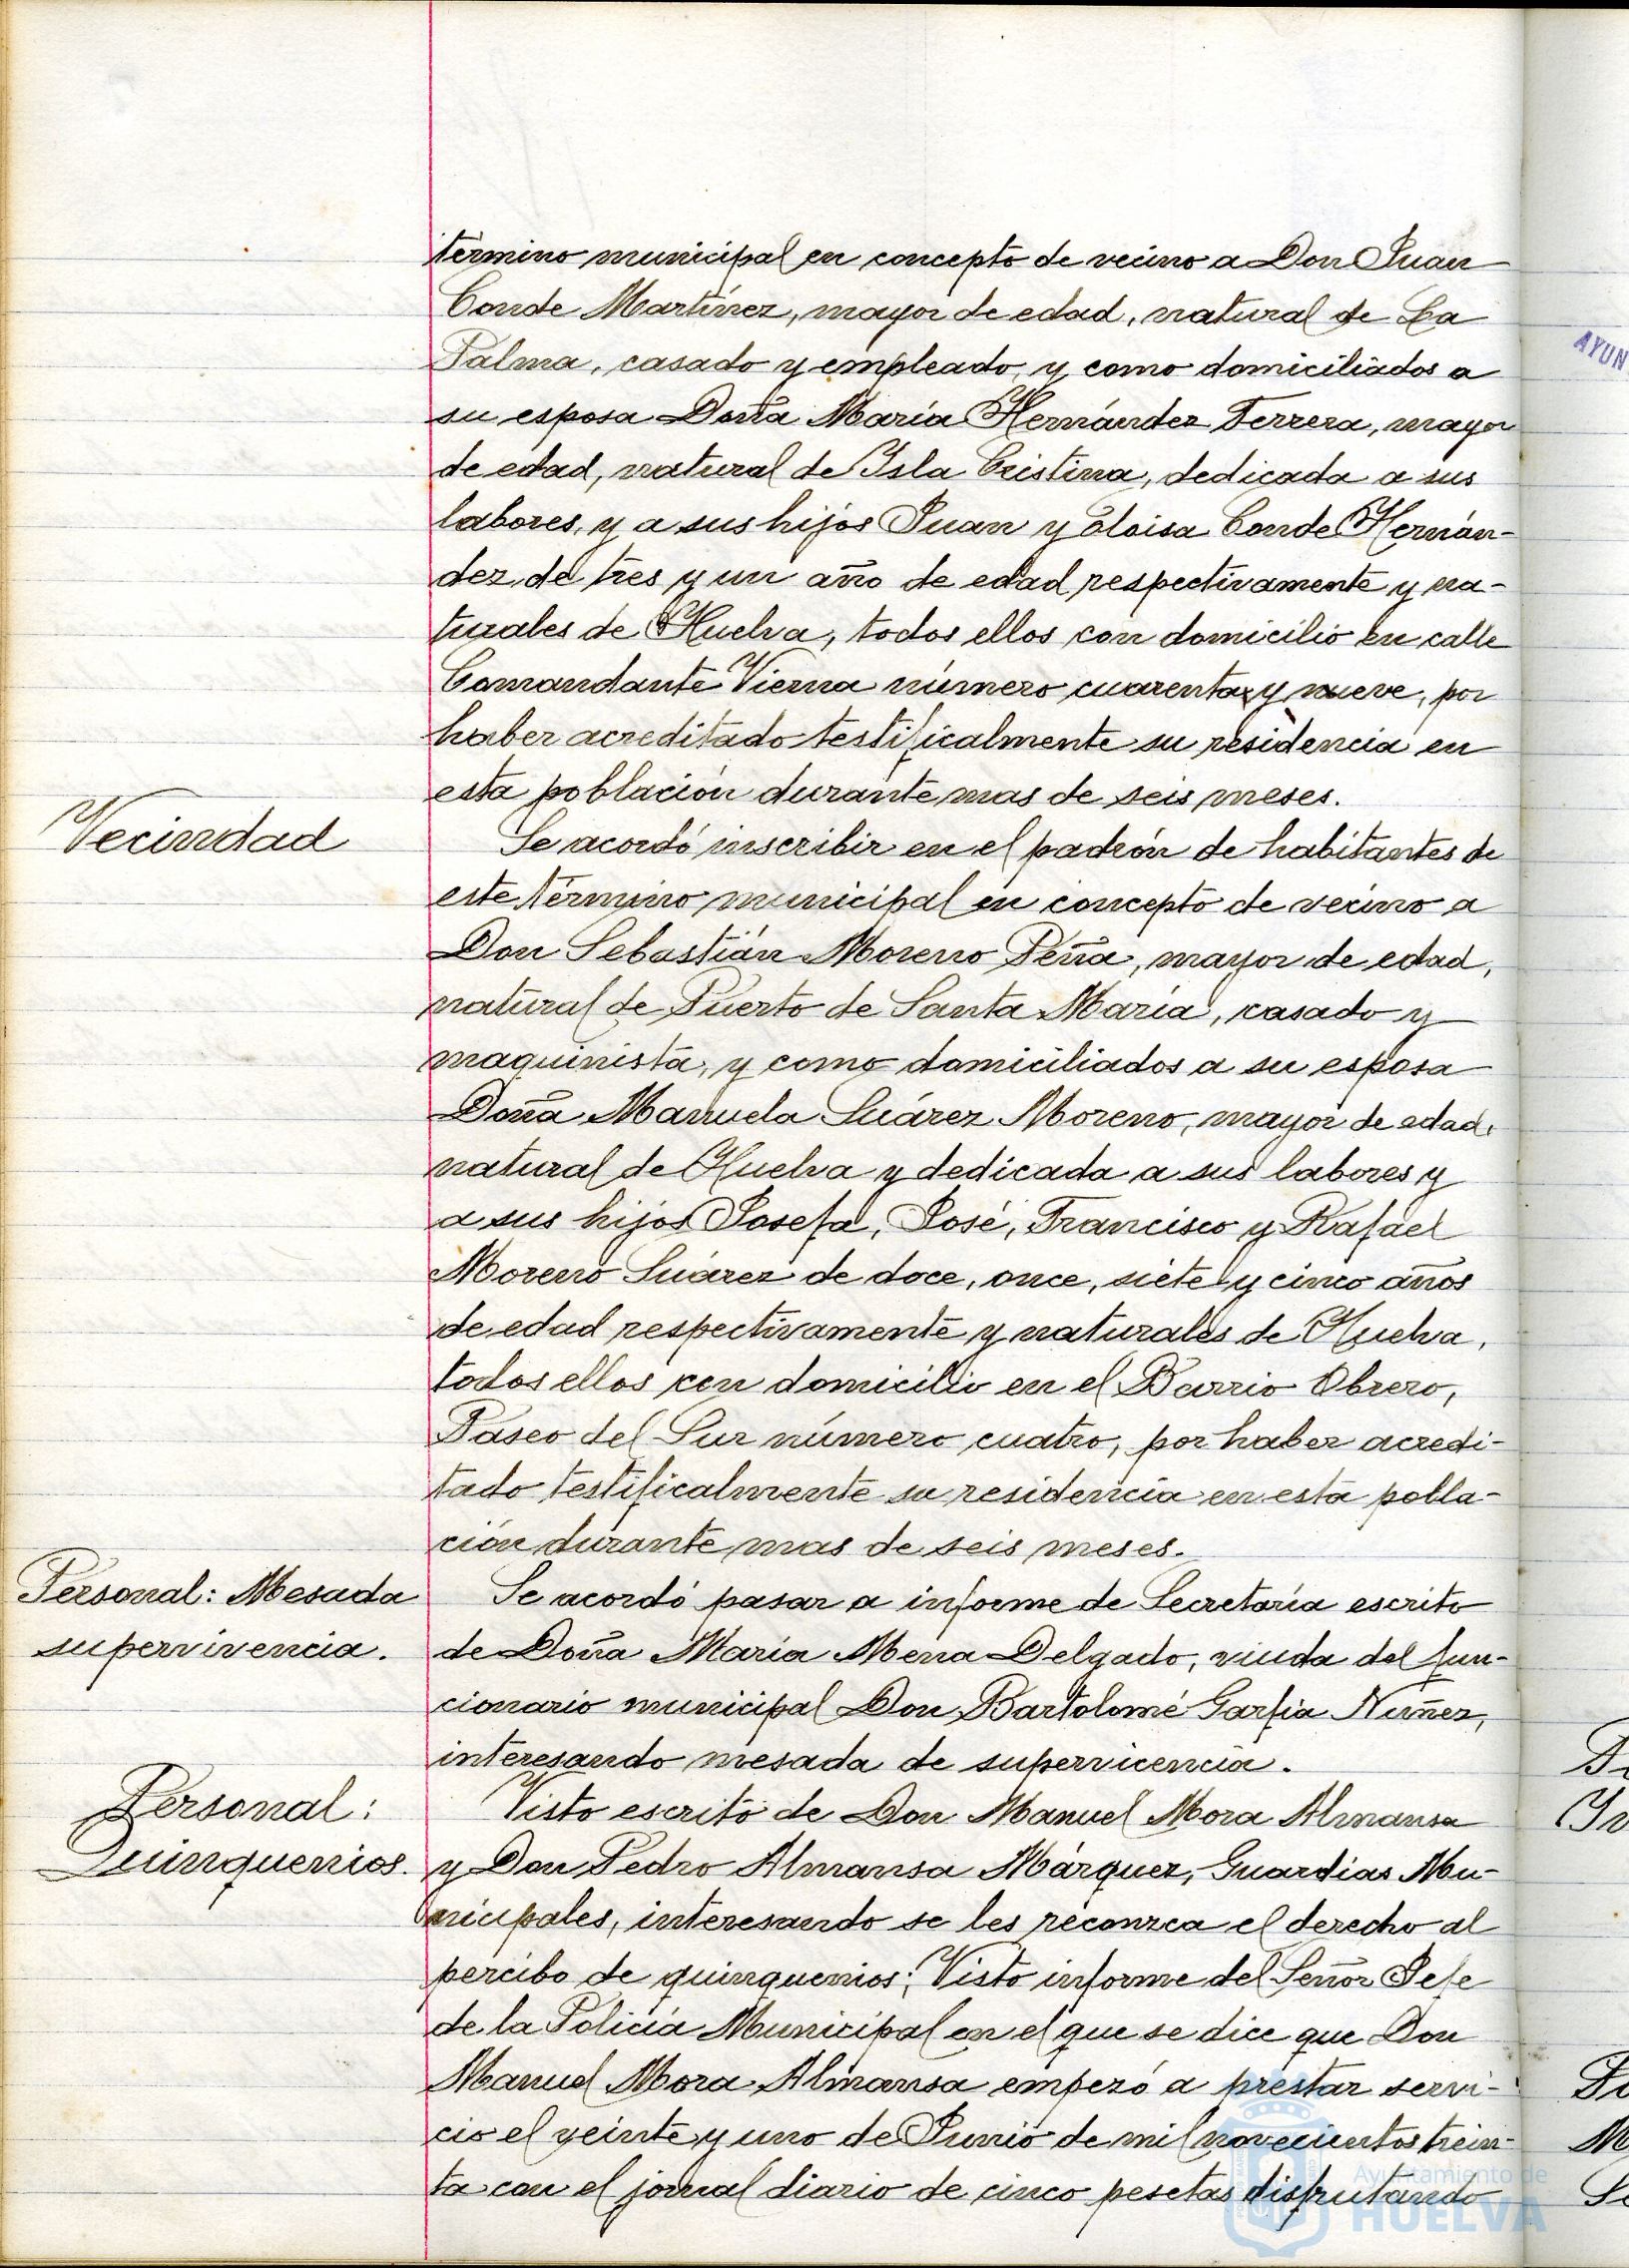 término municipal en concepto de vecino a Don Juan
Conde Martínez, mayor de edad, natural de La
Palma, casado y empleado, y como domiciliados a
su esposa Doña María Hernández Ferrera, mayor
de edad, natural de Isla Cristina, dedicada a sus
labores, y a sus hijos Juan y Eloisa Conde Hernán-
dez, de tres y un año de edad respectivamente y na-
turales de Huelva, todos ellos con domicilio en calle
Comandante Vierna número cuarenta y nueve, por
haber acreditado testificalmente su residencia en
esta población durante mas de seis meses.
Vecindad
Se acordó inscribir en el padrón de habitantes de
este término municipal en concepto de vecino a
Don Sebastián Moreno Peña, mayor de edad,
natural de Puerto de Santa María, casado y
maquinista, y como domiciliados a su esposa
Doña Manuela Suárez Moreno, mayor de edad,
natural de Huelva y dedicada a sus labores y
a sus hijos Josefa, José, Francisco y Rafael
Moreno Suárez de doce, once, siete y cinco años
de edad respectivamente y naturales de Huelva,
todos ellos con domicilio en el Barrio Obrero,
Paseo del Sur número cuatro, por haber acredi-
tado testificalmente su residencia en esta pobla-
ción durante mas de seis meses.
Personal: Mesada
supervivencia.
Se acordó pasar a informe de Secretaría escrito
de Doña María Mena Delgado, viuda del fun-
cionario municipal Don Bartolomé Garfia Nuñez,
interesando mesada de supervicencia.
Personal:
Quinquenios.
Visto escrito de Don Manuel Mora Almansa
y Don Pedro Almansa Márquez, Guardias Mu-
nicipales, interesando se les reconzca el derecho al
percibo de quinquenios; Visto informe del Señor Jefe
de la Policía Municipal en el que se dice que Don
Manuel Mora Almansa empezó a prestar servi-
cio el veinte y uno de Junio de mil novecientos trein-
ta con el jornal diario de cinco pesetas disfrutando
AYUN
Ayuntamiento de
HUELVA